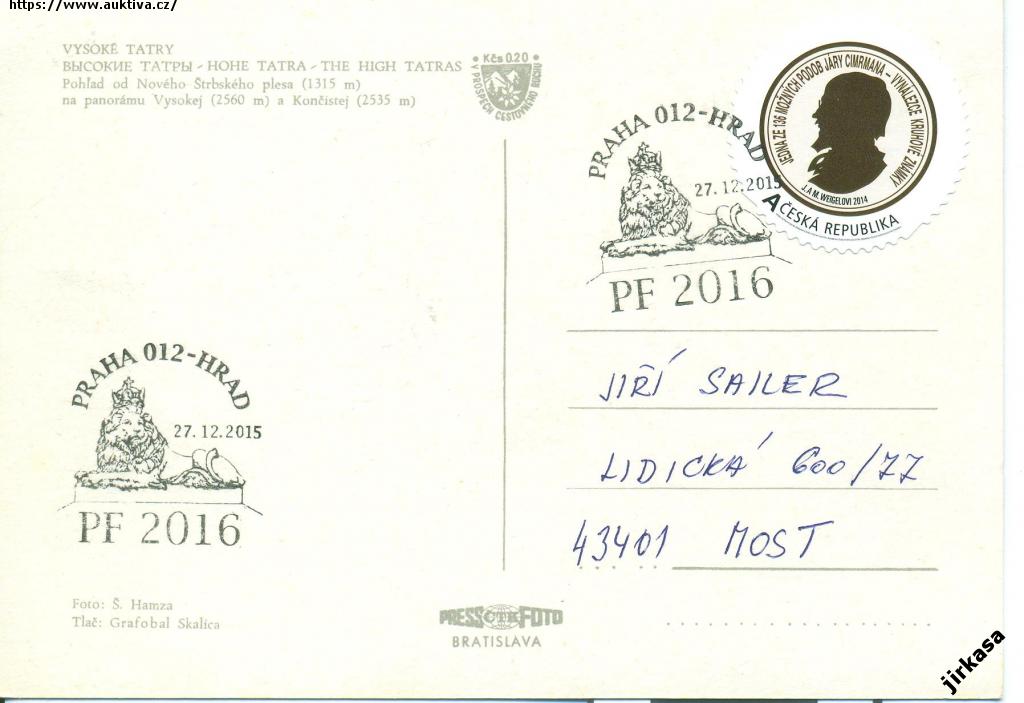 https://www.auktiva.cz/
VYSOKÉ TATRY
ВЫСОКИЕ ТАТРЫ - HOHE TATRA - THE HIGH TATRAS
Pohľad od Nového Štrbského plesa (1315 m)
na panorámu Vysokej (2560 m) a Končistej (2535 m)
Kčs 0.20
V PROSPECH CESTOVNÉHO RUCHU
PRAHA 012-HRAD
27.12.2015
PF 2016
JEDNA ZE 136 MOŽNÝCH PODOB JÁRY CIMRMANA – VYNÁLEZCE KRUHOVÉ ZNÁMKY
J. A M. WEIGELOVI 2014
A ČESKÁ REPUBLIKA
JIŘÍ SAILER
LIDICKÁ 600/77
43401 MOST
PRAHA 012-HRAD
27.12.2015
PF 2016
Foto: Š. Hamza
Tlač: Grafobal Skalica
PRESS ČTK FOTO
BRATISLAVA
jirkasa